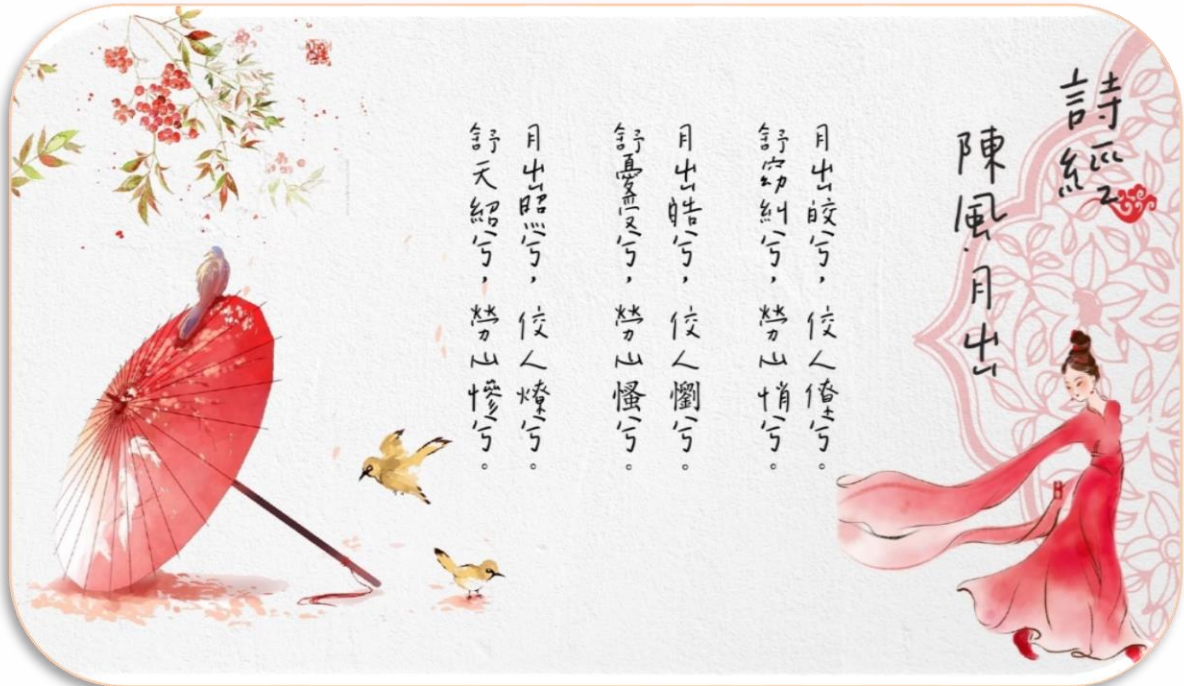 詩經
陳風·月出
月出皎兮，佼人僚兮。
舒窈糾兮，勞心悄兮。
月出皓兮，佼人懰兮。
舒憂受兮，勞心慅兮。
月出照兮，佼人燎兮。
舒夭紹兮，勞心慘兮。